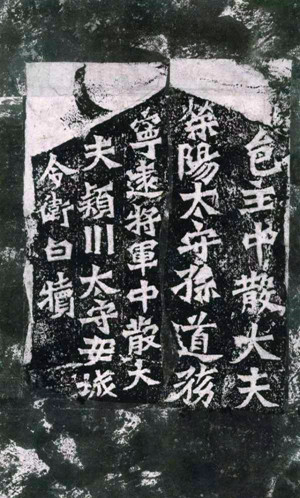 邑主中散大夫
滎陽太守孫道務
寧遠將軍中散大
夫穎川太守安城
令衛白犢